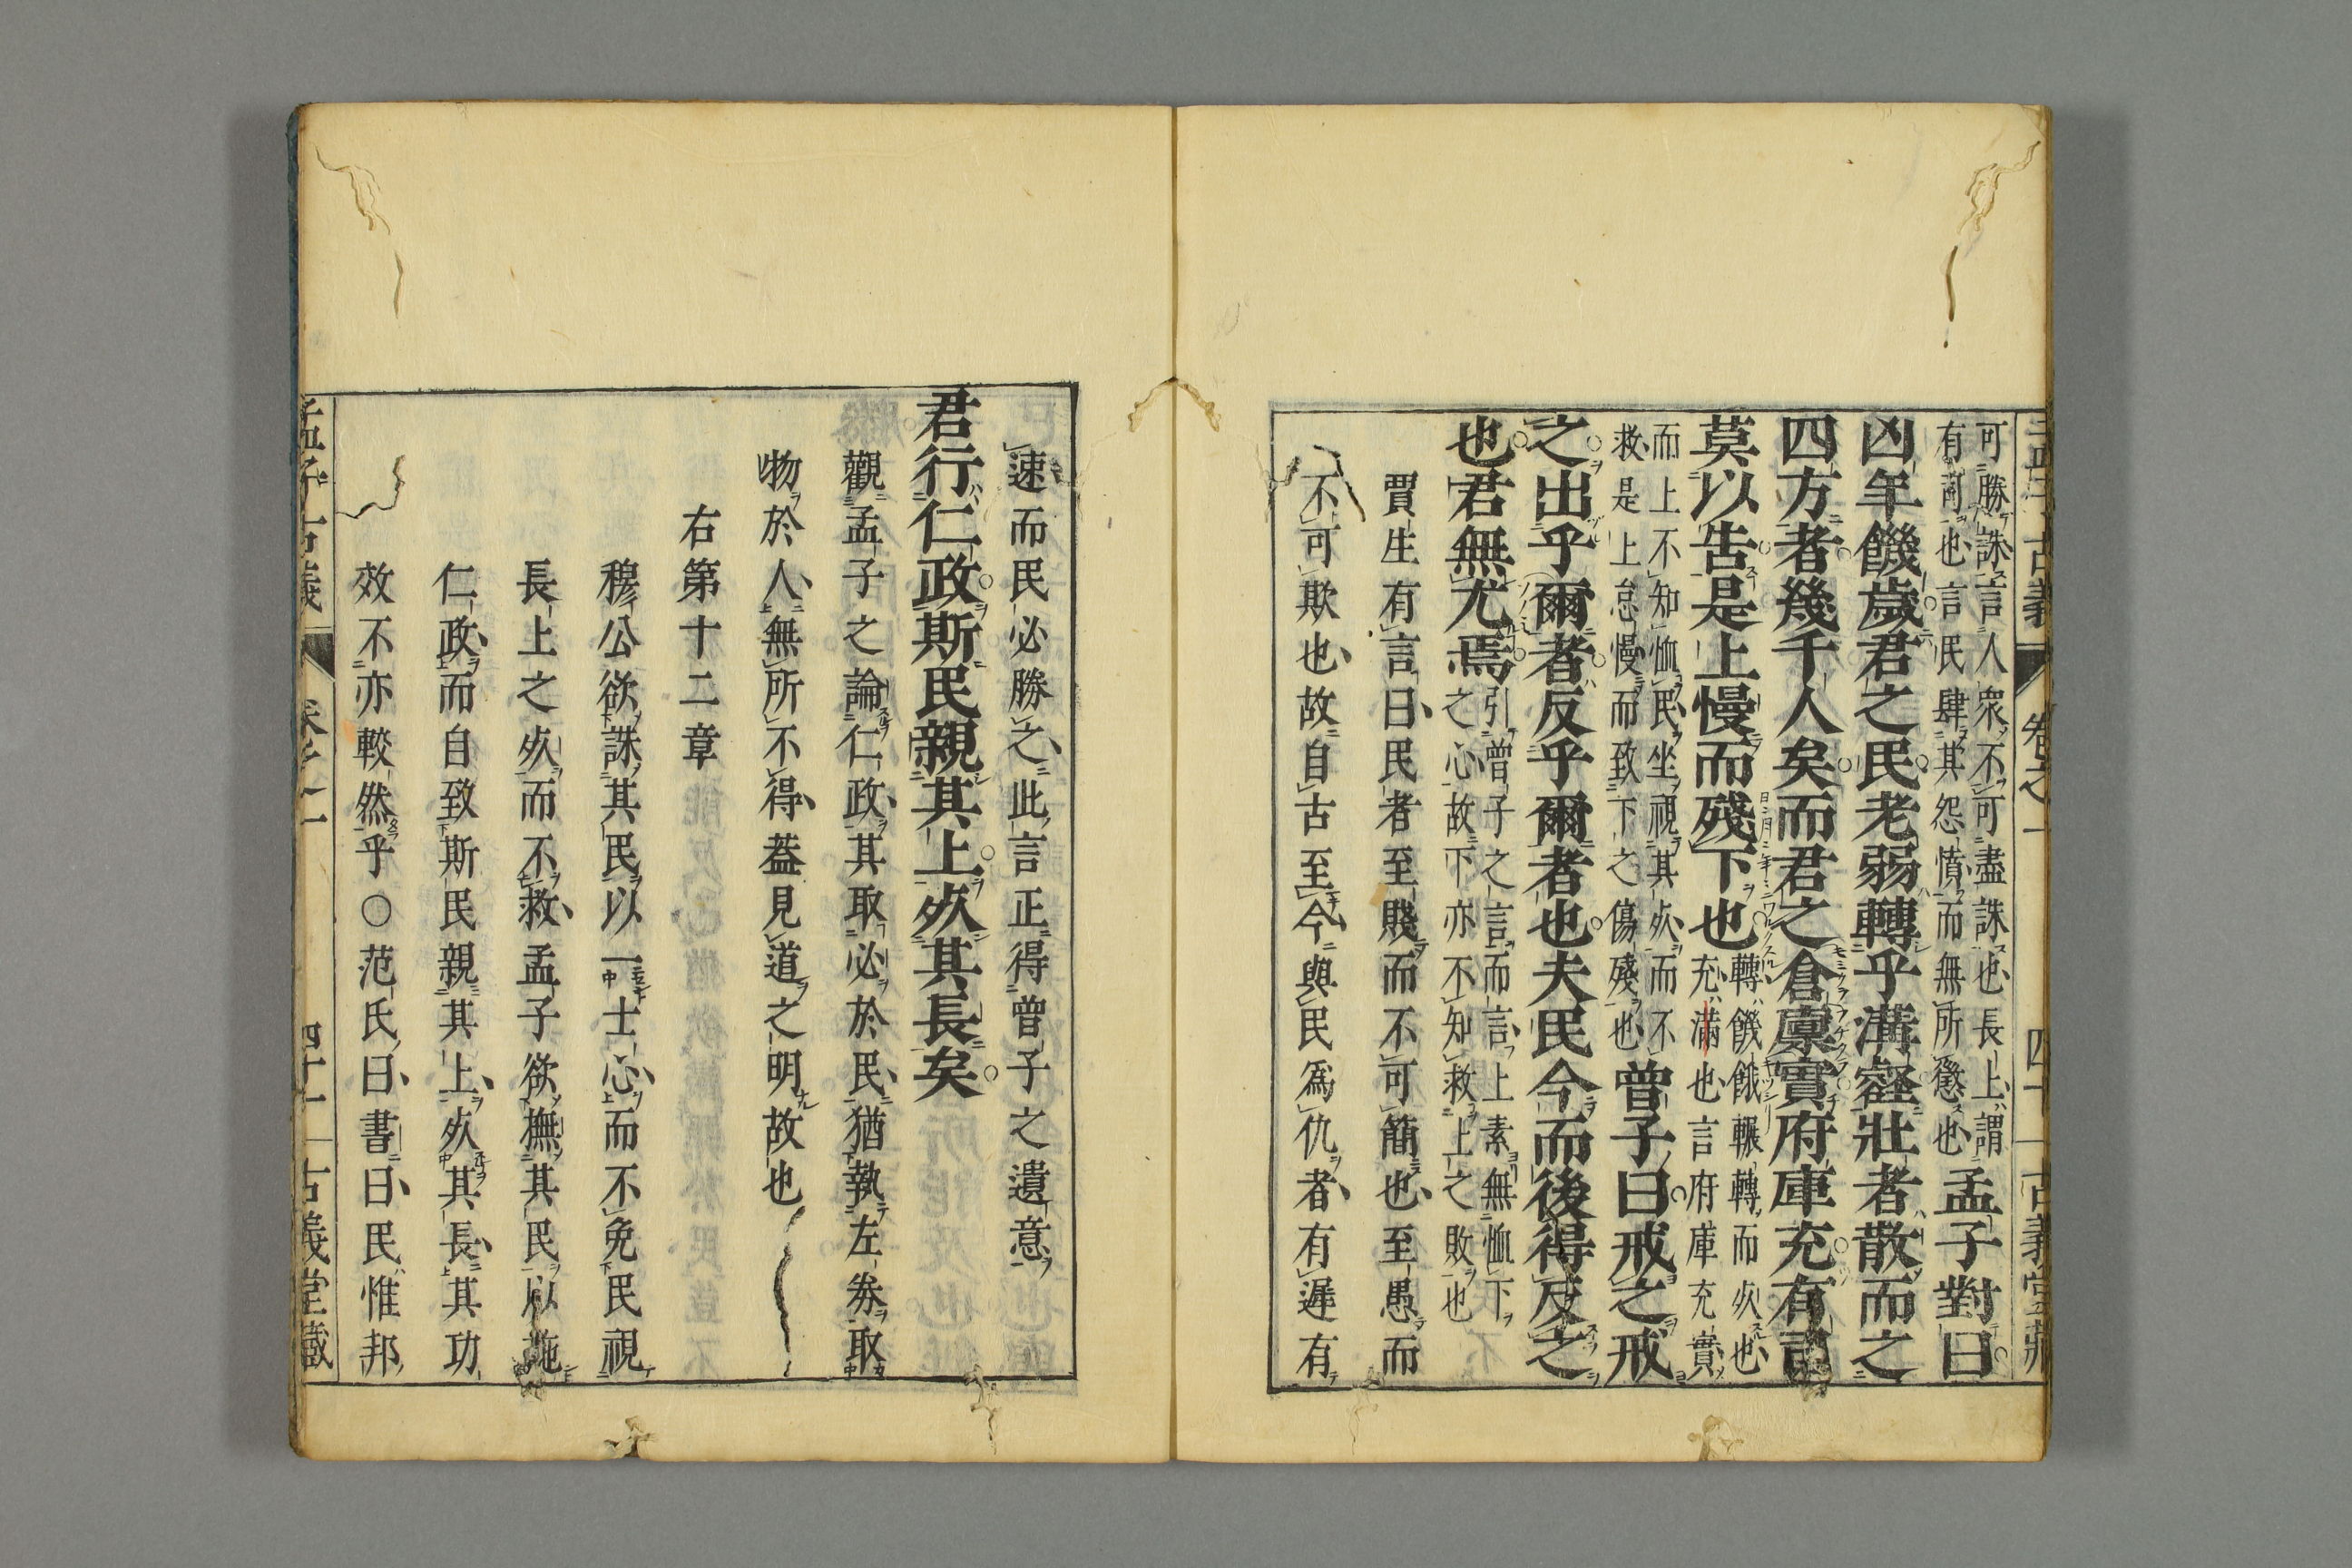 可勝誅言人衆不可盡誅也長上謂
有司也言民肆其怨憤而無所懲也孟子對曰
凶年饑歲君之民老弱轉乎溝壑壯者散而之
四方者幾千人矣而君之倉廩實府庫充有司
莫以告是上慢而殘下也轉饑餓輾轉而死也
充滿也言府庫充實
而上不知恤民坐視其死而不
救是上怠慢而致下之傷殘也曾子曰戒之戒
之出乎爾者反乎爾者也夫民今而後得反之
也君無尤焉引曾子之言而言上素無恤下
之心故下亦不知救上之敗也
賈生有言曰民者至賤而不可簡也至愚而
不可欺也故自古至今與民爲仇者有遲有
速而民必勝之此言正得曾子之遺意
君行仁政斯民親其上死其長矣
觀孟子之論仁政其取必於民猶執左券取
物於人無所不得蓋見道之明故也
右第十二章
穆公欲誅其民以一士心而不免民視
長上之死而不救孟子欲撫其民以施
仁政而自致斯民親其上死其長其功
效不亦較然乎○范氏曰書曰民惟邦
孟子古義 卷之一 四十一 古義堂藏